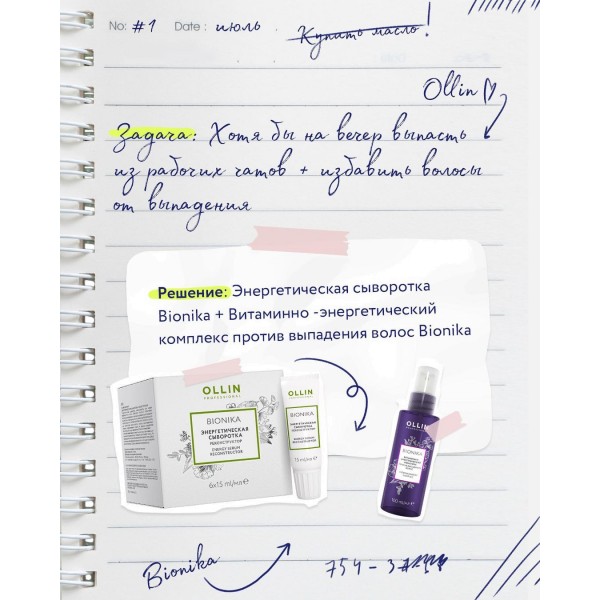 No: #1 Date: июль Купить масло!
Ollin
Задача: Хотя бы на вечер выпасть
из рабочих чатов + избавить волосы
от выпадения
Решение: Энергетическая сыворотка
Bionika + Витаминно -энергетический
комплекс против выпадения волос Bionika
OLLIN
PROFESSIONAL
BIONIKA
ЭНЕРГЕТИЧЕСКАЯ
СЫВОРОТКА
РЕКОНСТРУКТОР
ENERGY SERUM
RECONSTRUCTOR
6x15 ml/мл ℮
OLLIN
BIONIKA
15 ml/мл ℮
OLLIN
BIONIKA
Bionika
754-3